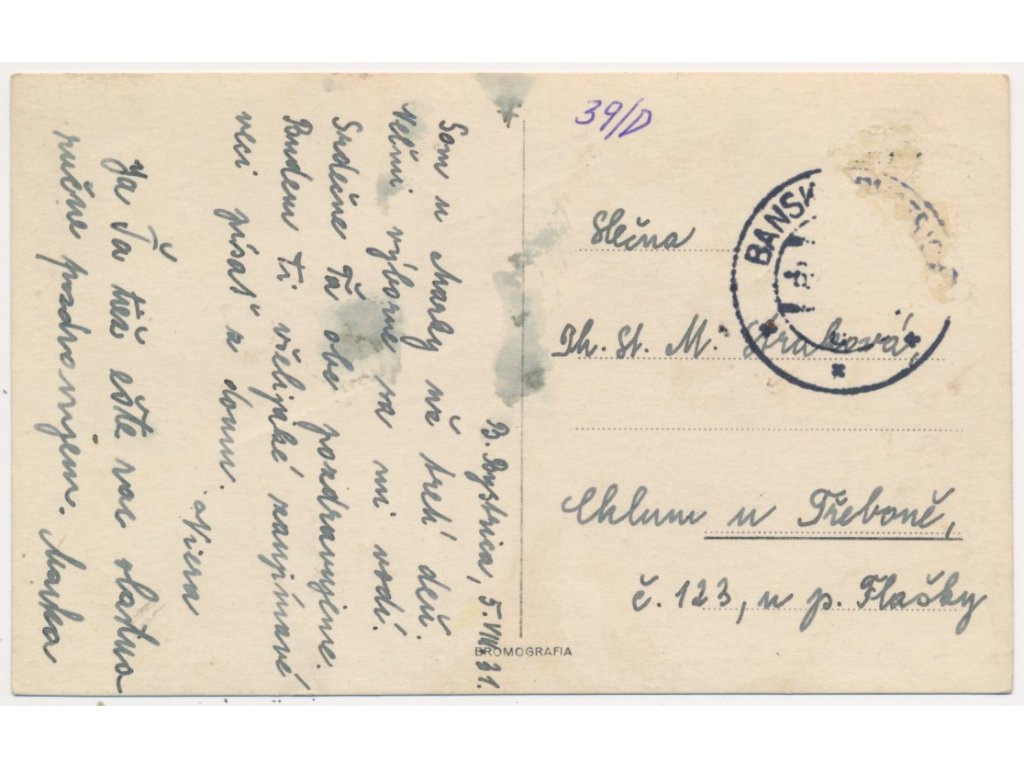 B. Bystrica, 5. VIII. 31.
Som u Marky už tretí deň.
Veľmi výborne sa mi vodí.
Srdečne Ťa obe pozdravujeme.
Budem Ti všelijaké zaujímavé
veci písať z domu.
Viera
Ja Ťa tiež ešte raz vlastno
ručne pozdravujem. Marka
39/D
BANSK
Slečna
Ph. St. M. Straková,
Chlum u Třeboně,
č. 123, u p. Flašky
BROMOGRAFIA